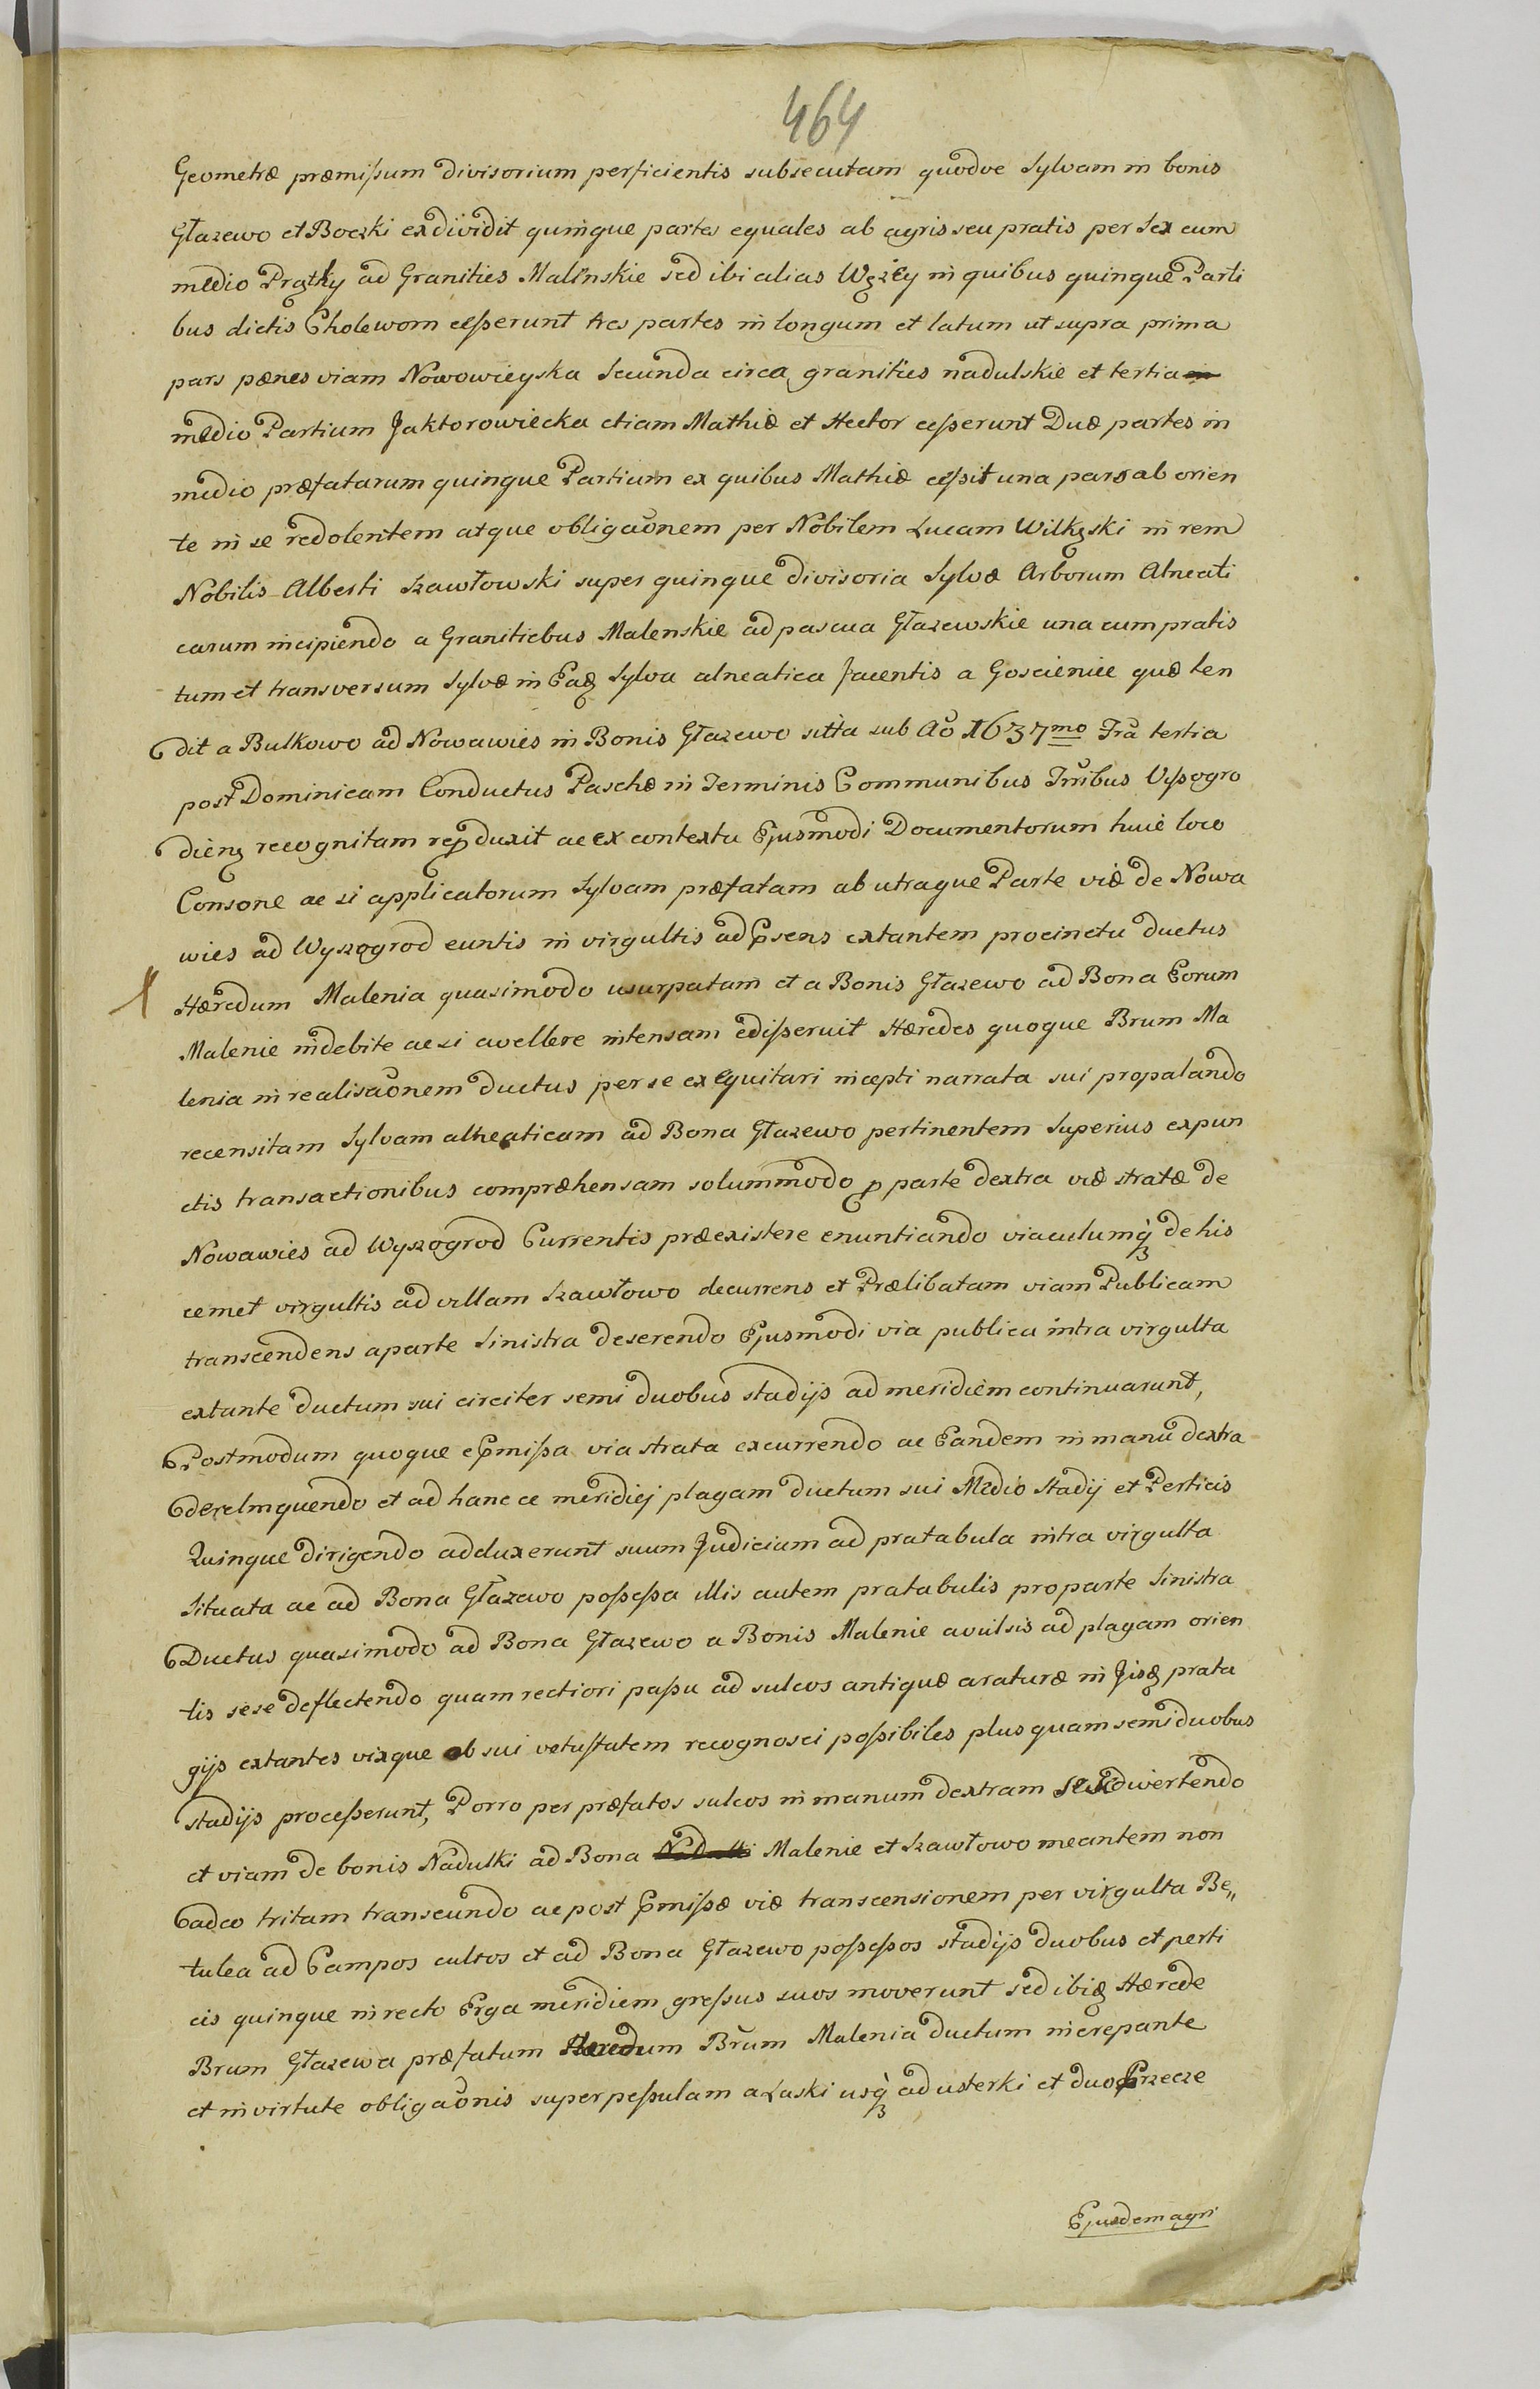 464
Geometræ præmissum divisorium perficientis subsecutam quodve Sylvam in bonis
Głazewo et Boczki exdividit quinque partes equales ab agris seu pratis per Sex cum
medio Prątky ad Granities Malinskie sed ibi alias Węzły in quibus quinque Parti
bus dictis Cholewom cesserunt tres partes in longum et latum ut supra prima
pars pænes viam Nowowieyska Secunda circa granities nadulskie et tertia
medio Partium Jaktorowiecka etiam Mathiæ et Hector cesserunt Duæ partes in
medio præfatarum quinque Partium ex quibus Mathiæ cessit una pars ab orien
te in se redolentem atque obligaonem per Nobilem Lucam Wilkęski in rem
Nobilis Alberti Szawłowski super quinque divisoria Sylvæ Arborum Alneati
carum incipiendo a Granitiebus Malenskie ad pascua Głazewskie una cum pratis
tum et transversum Sylvæ in Eaq Sylva alneatica Jacentis a Goscieniec quæ ten
dit a Bulkowo ad Nowawies in Bonis Głazewo sitta sub Ao 1637mo Fra tertia
post Dominicam Conductus Paschæ in Terminis Communibus Trribus Vyssogro
dienq recognitam repduxit ac ex contextu Ejusmodi Documentorum huic loco
Consone ac si applicatorum Sylvam præfatam ab utraque Parte viæ de Nowa
wies ad Wyszogrod euntis in virgultis ad Psens extantem procinctu ductus
Hæredum Malenia quasimodo usurpatam et a Bonis Głazewo ad Bona Eorum
Malenie indebite ac si avellere intensam edisseruit Hæredes quoque Brum Ma
lenia in realisaonem ductus per se exequitari incepti narrata sui propalando
recensitam Sylvam alneaticam ad Bona Głazewo pertinentem Superius expun
ctis transactionibus compræhensam solummodo p parte dextra viæ stratæ de
Nowawies ad Wyszogrod Currentis præexistere enuntiando viaculumq de his
cemet virgultis ad villam Szawłowo decurrens et Prælibatam viam Publicam
transcendens a parte Sinistra deserendo Ejusmodi via publica intra virgulta
extante ductum sui circiter semi duobus stadijs ad meridiem continuarunt,
Postmodum quoque e Pmissa via strata excurrendo ac Eandem in manu dextra
derelinquendo et ad hance ce meridiej plagam ductum sui Medio Stadij et Perticis
Quinque dirigendo adduxerunt suum Judicium ad pratabula intra virgulta
Situata ac ad Bona Głazewo possessa illis autem pratabulis pro parte Sinistra
Ductus quasimodo ad Bona Głazewo a Bonis Malenie avulsis ad plagam orien
tis sese deflectendo quam rectiori passu ad sulcos antiquæ araturæ in Jisq prata
gijs extantes vixque ob sui vetustatem recognosci possibiles plus quam semiduobus
stadijs processerunt, Porro per præfatos sulcos in manum dextram se divertendo
et viam de bonis Nadulki ad Bona Malenie et Szawłowo meantem non
adeo tritam transeundo ac post Pmissæ viæ transcensionem per virgulta Be„
tulea ad Campos cultos et ad Bona Głazewo possessos stadijs duobus et perti
cis quinque in recto Erga meridiem gressus suos moverunt sed ibiq Hærede
Brum Głazewa præfatum Hæredum Brum Malenia ductum increpante
et in virtute obligaonis super pessulam a Laski usq ad usterki et duo Przecze
Ejusdem agri